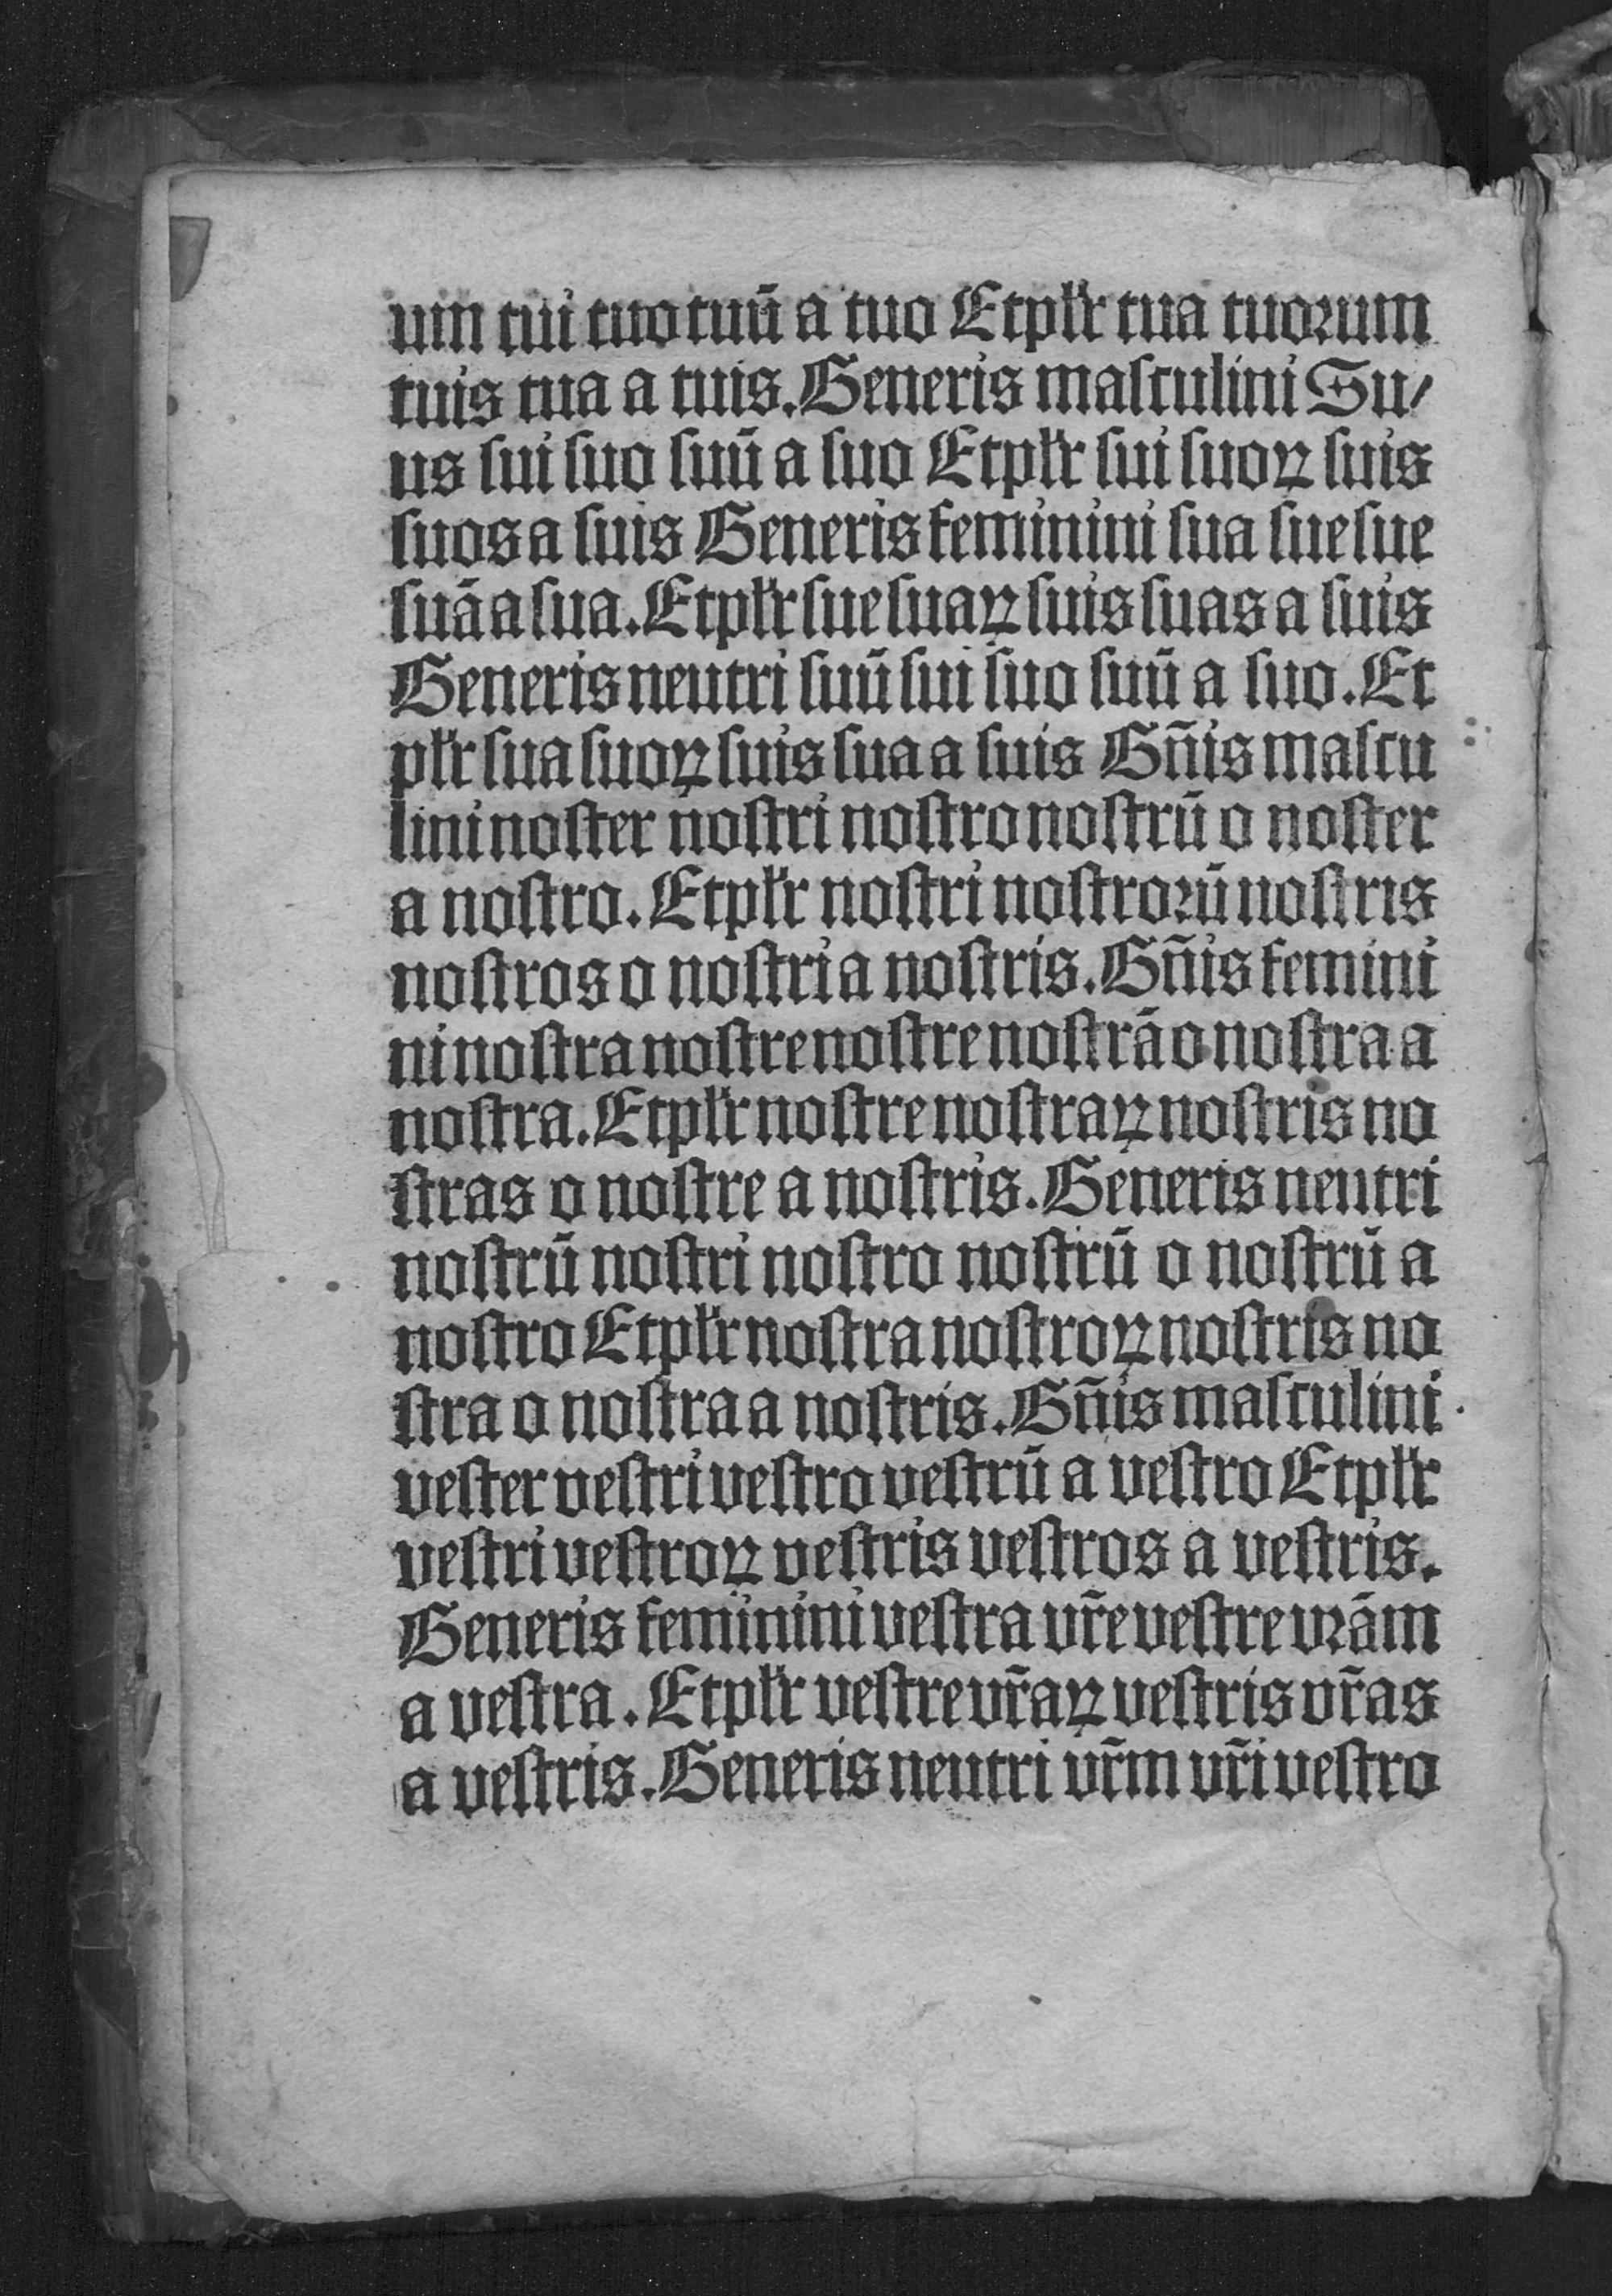 um tui tuo tuū a tuo Et płr tua tuoꝛum
tuis tua a tuis. Generis maſculini Su/
us ſui ſuo ſuū a ſuo Et płr ſui ſuoꝝ ſuis
ſuos a ſuis Generis feminini ſua ſue ſue
ſuā a ſua. Et płr ſue ſuaꝝ ſuis ſuas a ſuis
Generis neutri ſuū ſui ſuo ſuū a ſuo. Et
płr ſua ſuoꝝ ſuis ſua a ſuis Gn̄is maſcu
lini noſter noſtri noſtro noſtrū o noſter
a noſtro. Et płr noſtri noſtroꝛū noſtris
noſtros o noſtri a noſtris. Gn̄is femini
ni noſtra noſtre noſtre noſtrā o noſtra a
noſtra. Et płr noſtre noſtraꝝ noſtris no
ſtras o noſtre a noſtris. Generis neutri
noſtrū noſtri noſtro noſtrū o noſtrū a
noſtro Et płr noſtra noſtroꝝ noſtris no
ſtra o noſtra a noſtris. Gn̄is maſculini
veſter veſtri veſtro veſtrū a veſtro Et płr
veſtri veſtroꝝ veſtris veſtros a veſtris.
Generis feminini veſtra vr̄e veſtre vꝛām
a veſtra. Et płr veſtre vr̄aꝝ veſtris vr̄as
a veſtris. Generis neutri vr̄m vr̄i veſtro